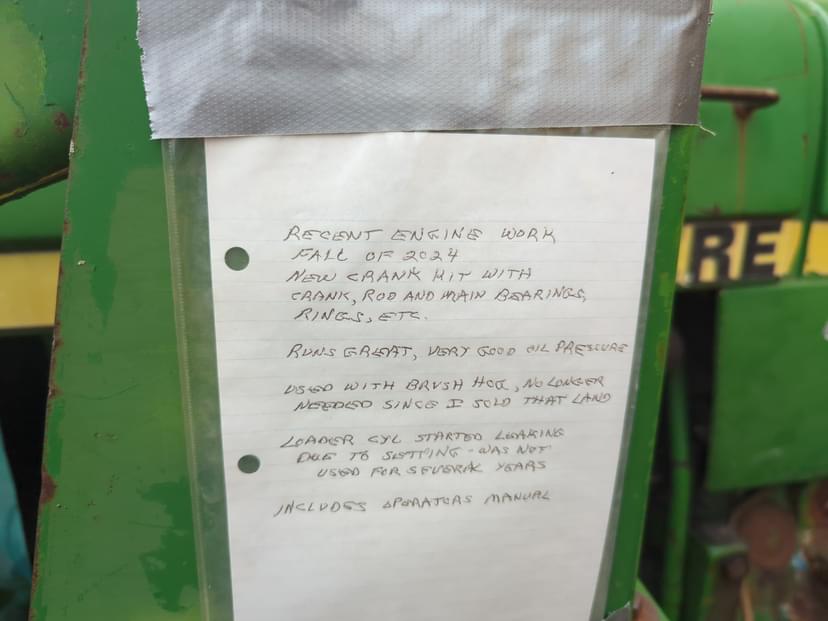 RECENT ENGINE WORK
FALL OF 2024
NEW CRANK KIT WITH
CRANK, ROD AND MAIN BEARINGS,
RINGS, ETC.
RUNS GREAT, VERY GOOD OIL PRESSURE
USED WITH BRUSH HOG, NO LONGER
NEEDED SINCE I SOLD THAT LAND
LOADER CYL STARTED LEAKING
DUE TO SETTING - WAS NOT
USED FOR SEVERAL YEARS
INCLUDES OPERATORS MANUAL
RE